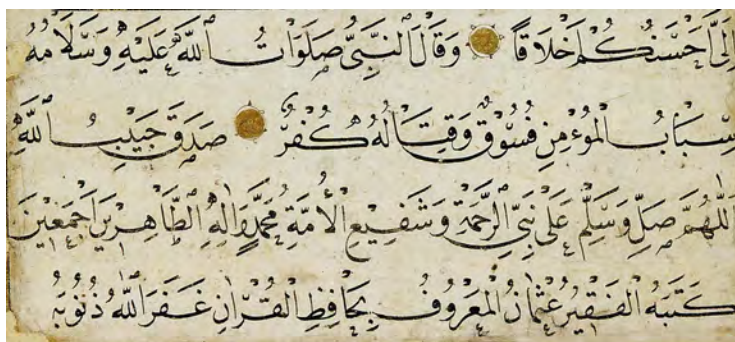 إِلَىَّ أَحْسَنُكُمْ أَخْلَاقًا وَقَالَ النَّبِيُّ صَلَوَاتُ اللَّهِ عَلَيْهِ وَسَلَامُهُ
سِبَابُ الْمُوْءمِنِ فُسُوْقٌ وَقِتَالُهُ كُفْرٌ صَدَقَ حَبِيْبُ اللَّهِ
اَللّٰهُمَّ صَلِّ وَسَلِّمْ عَلٰى نَبِيِّ الرَّحْمَةِ وَشَفِيْعِ الْأُمَّةِ مُحَمَّدٍ وَاٰلِهِ الطَّاهِرِيْنَ اَجْمَعِيْنَ
كَتَبَهُ الْفَقِيْرُ عُثْمَانُ الْمَعْرُوْفُ بِحَافِظِ الْقُرْاٰنِ غَفَرَ اللّٰهُ ذُنُوْبَهُ